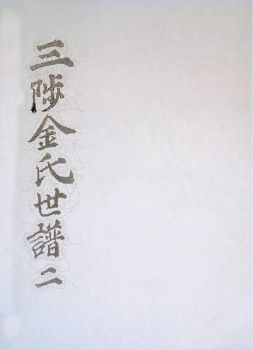 三陟金氏世譜 二